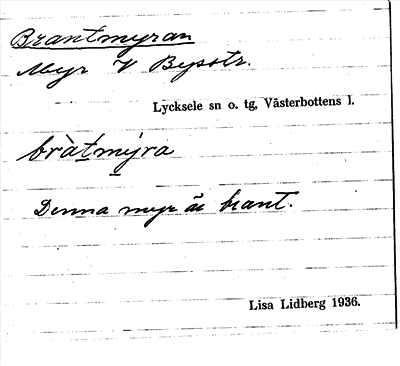 Brantmyran
Myr V Bysstr.
Lycksele sn o. tg, Västerbottens l.
bràtmýra
Denna myr är brant.
Lisa Lidberg 1936.